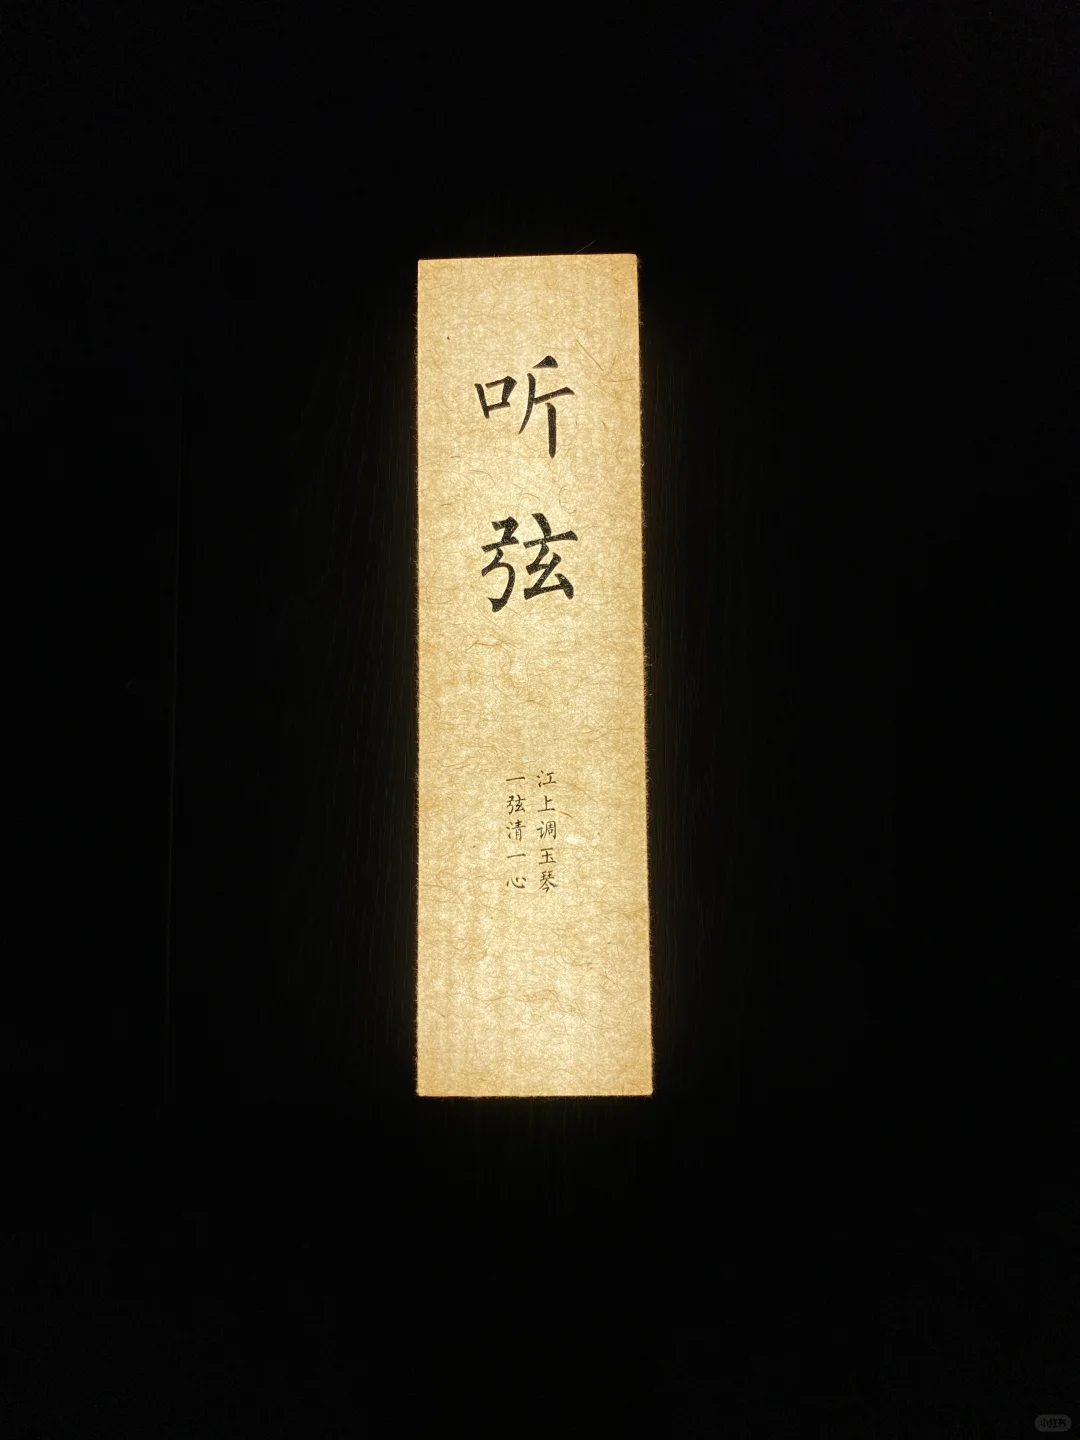 听弦
江上调玉琴
一弦清一心
小红书